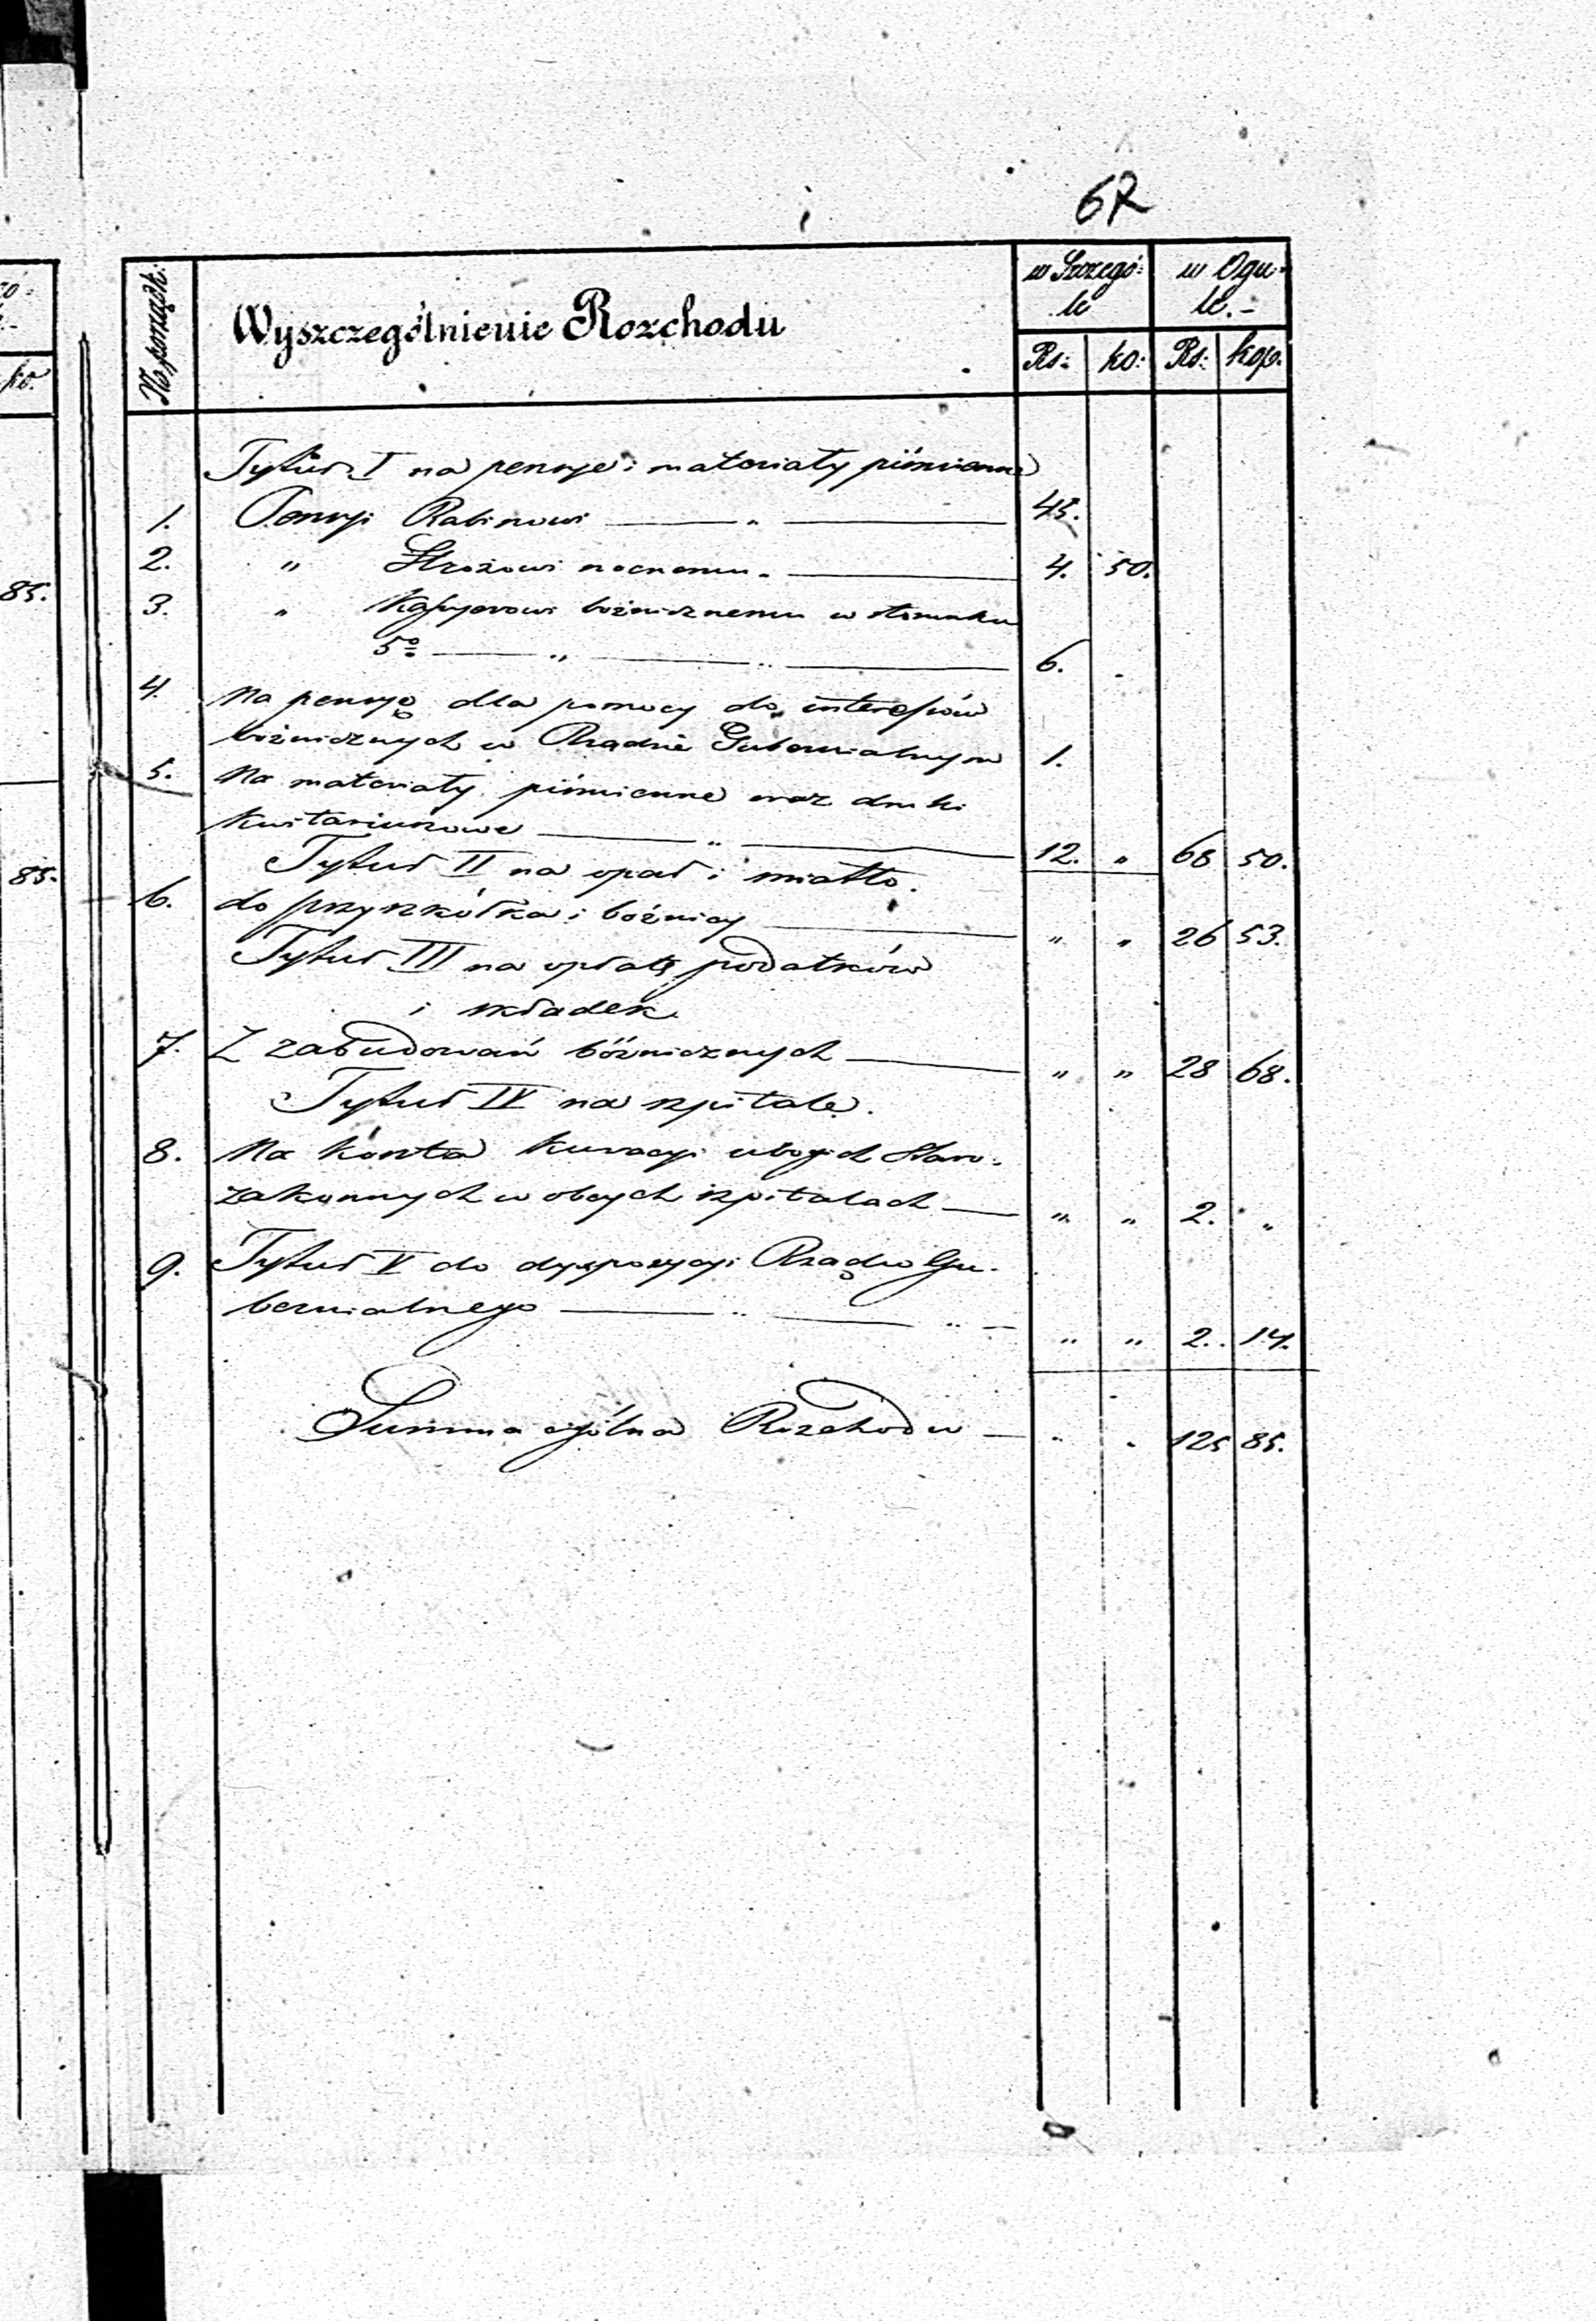 62
No porządk:
Wyszczególnienie Rozchodu
w Szczegó=
le
w Ogu=
le.-
Rs: ko: Rs: kop.
ko.
Tytuł I na pensye i materiały piśmienne
1. Pensyi Rabinowi — „ — 45.
2. „ Stróżowi nocnemu. — 4. 50.
3. „ Kassyerowi bóżnicznemu w stosunku
5% — „ — „ — 6. -
4. Na pensyę dla pomocy do interessów
bóżnicznych w Rządzie Gubernialnym 1.
5. Na materiały piśmienne oraz druki
kwitariuszowe — „ — 12. „ 68 50.
Tytuł II na opał i światło.
6. do przyszkółka i bóżnicy — „ „ 26 53.
Tytuł III na opłatę podatków
i składek
7. Z zabudowań bóżnicznych — „ „ 28 68.
Tytuł IV na szpitale.
8. Na koszta kuracyi ubogich Staro-
zakonnych w obcych szpitalach — „ „ 2. „
9. Tytuł V do dyspozycyi Rządu Gu-
bernialnego — „ — „ — „ „ 2. 14.
Summa ogólna Rozchodu — „ „ 125 85.
85.
85.